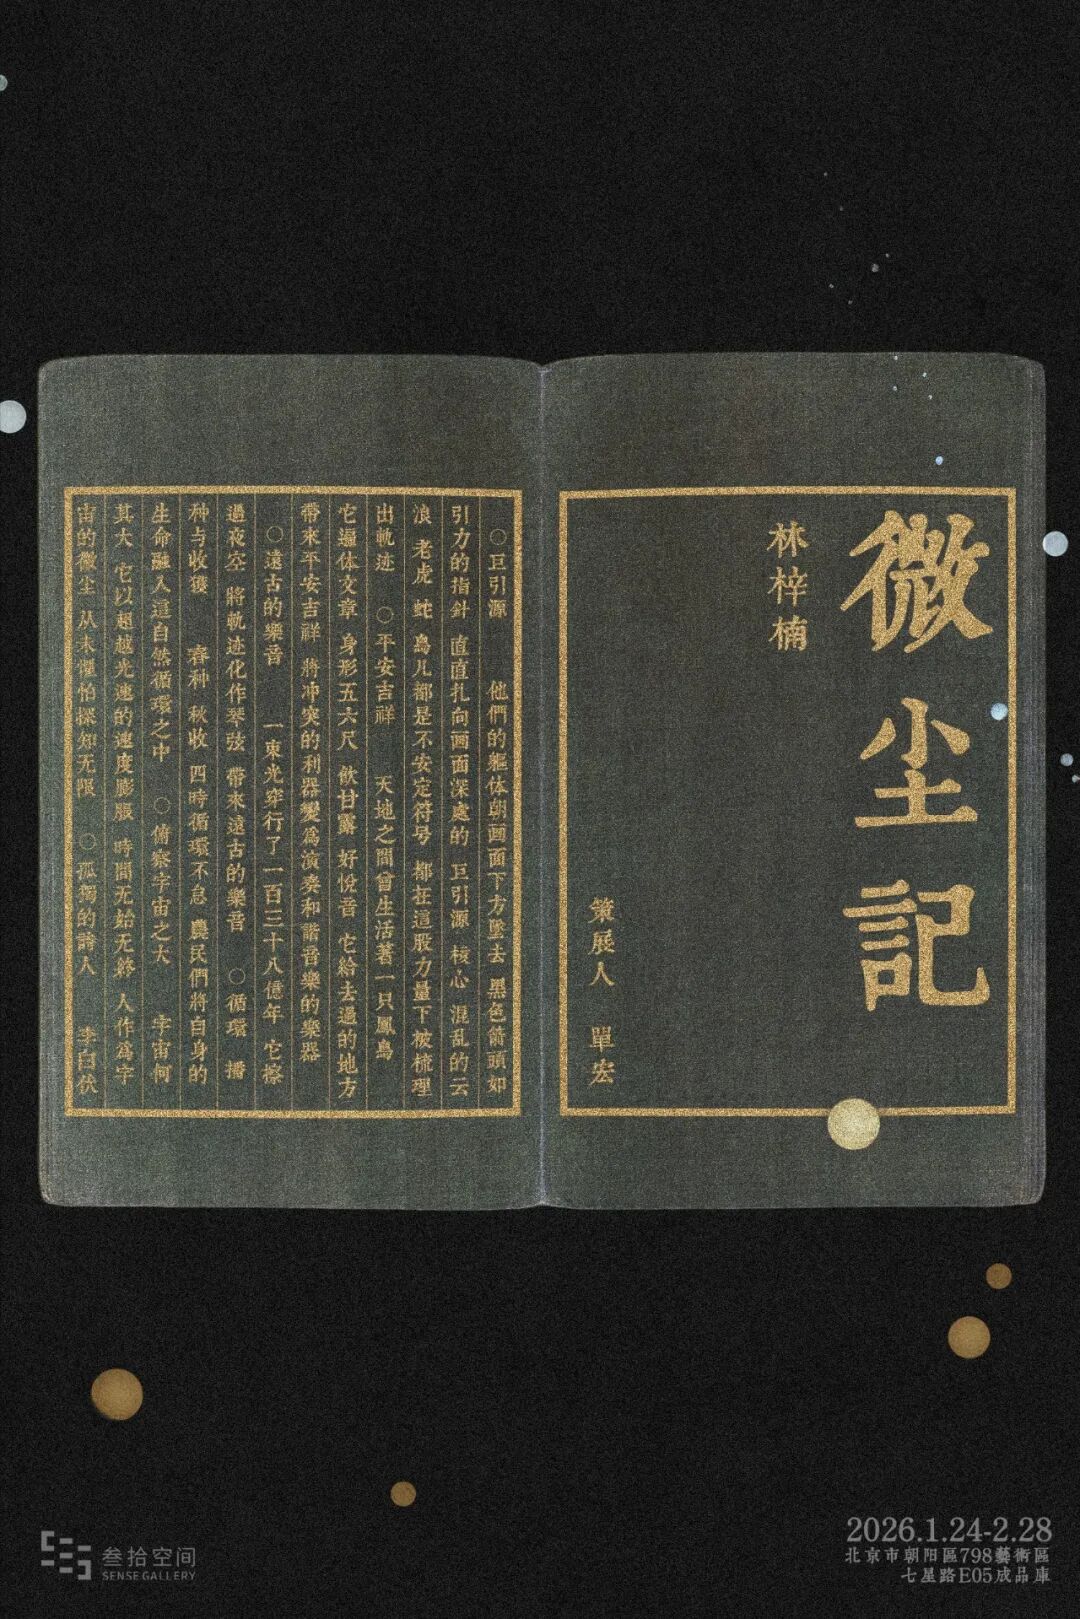 微尘記
林梓楠
策展人 單宏
○巨引源 他們的軀体朝画面下方墜去 黑色箭頭如
引力的指針 直直扎向画面深處的 巨引源 核心 混乱的云
浪 老虎 蛇 鳥儿都是不安定符号 都在這股力量下被梳理
出軌迹 ○平安吉祥 天地之間曾生活著一只鳳鳥
它遍体文章 身形五六尺 飲甘露 好悅音 它給去過的地方
帶來平安吉祥 將冲突的利器變爲演奏和諧音樂的樂器
○遠古的樂音 一束光穿行了一百三十八億年 它擦
過夜空 將軌迹化作琴弦 帶來遠古的樂音 ○循環 播
种与收獲 春种 秋收 四時循環不息 農民們將自身的
生命融入這自然循環之中 ○俯察宇宙之大 宇宙何
其大 它以超越光速的速度膨脹 時間无始无終 人作爲宇
宙的微尘 从未懼怕探知无限 ○孤獨的詩人 李白伏
叁拾空间
SENSE GALLERY
2026.1.24-2.28
北京市朝阳區798藝術區
七星路E05成品庫